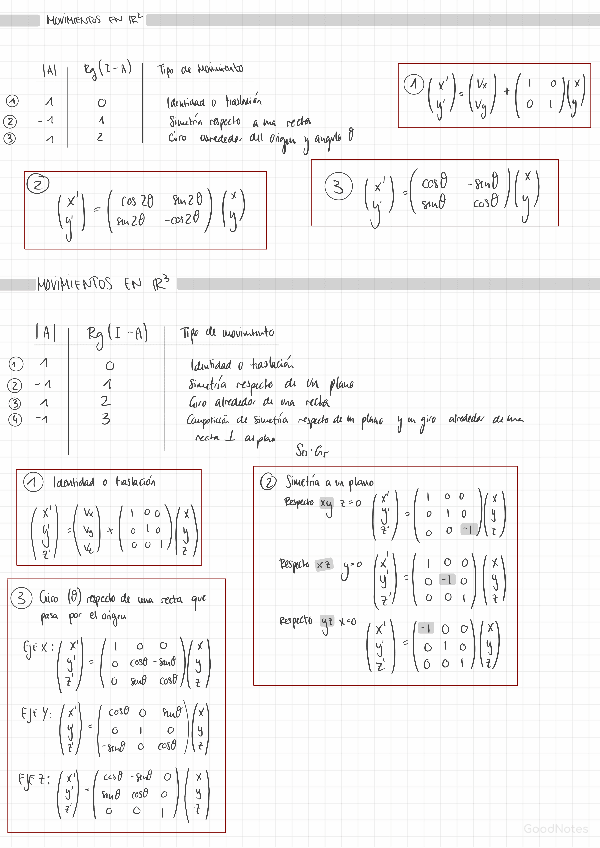 MOVIMIENTOS EN IR²
|A| Rg(I-A) Tipo de movimiento
① 1 0 Identidad o traslación
② -1 1 Simetría respecto a una recta
③ 1 2 Giro alrededor del origen y ángulo θ
① (x' y') = (Vx Vy) + (1 0 / 0 1)(x y)
② (x' y') = (cos2θ sin2θ / sin2θ -cos2θ)(x y)
③ (x' y') = (cosθ -senθ / senθ cosθ)(x y)
MOVIMIENTOS EN IR³
|A| Rg(I-A) Tipo de movimiento
① 1 0 Identidad o traslación
② -1 1 Simetría respecto de un plano
③ 1 2 Giro alrededor de una recta
④ -1 3 Composición de simetría respecto de un plano y un giro alrededor de una
recta ⊥ al plano
① Identidad o traslación
(x' y' z') = (Vx Vy Vz) + (1 0 0 / 0 1 0 / 0 0 1)(x y z)
② Simetría a un plano
Respecto xy z=0 (x' y' z') = (1 0 0 / 0 1 0 / 0 0 -1)(x y z)
Respecto xz y=0 (x' y' z') = (1 0 0 / 0 -1 0 / 0 0 1)(x y z)
Respecto yz x=0 (x' y' z') = (-1 0 0 / 0 1 0 / 0 0 1)(x y z)
③ Giro (θ) respecto de una recta que
pasa por el origen
EJE X: (x' y' z') = (1 0 0 / 0 cosθ -senθ / 0 senθ cosθ)(x y z)
EJE Y: (x' y' z') = (cosθ 0 senθ / 0 1 0 / -senθ 0 cosθ)(x y z)
EJE Z: (x' y' z') = (cosθ -senθ 0 / senθ cosθ 0 / 0 0 1)(x y z)
GoodNotes